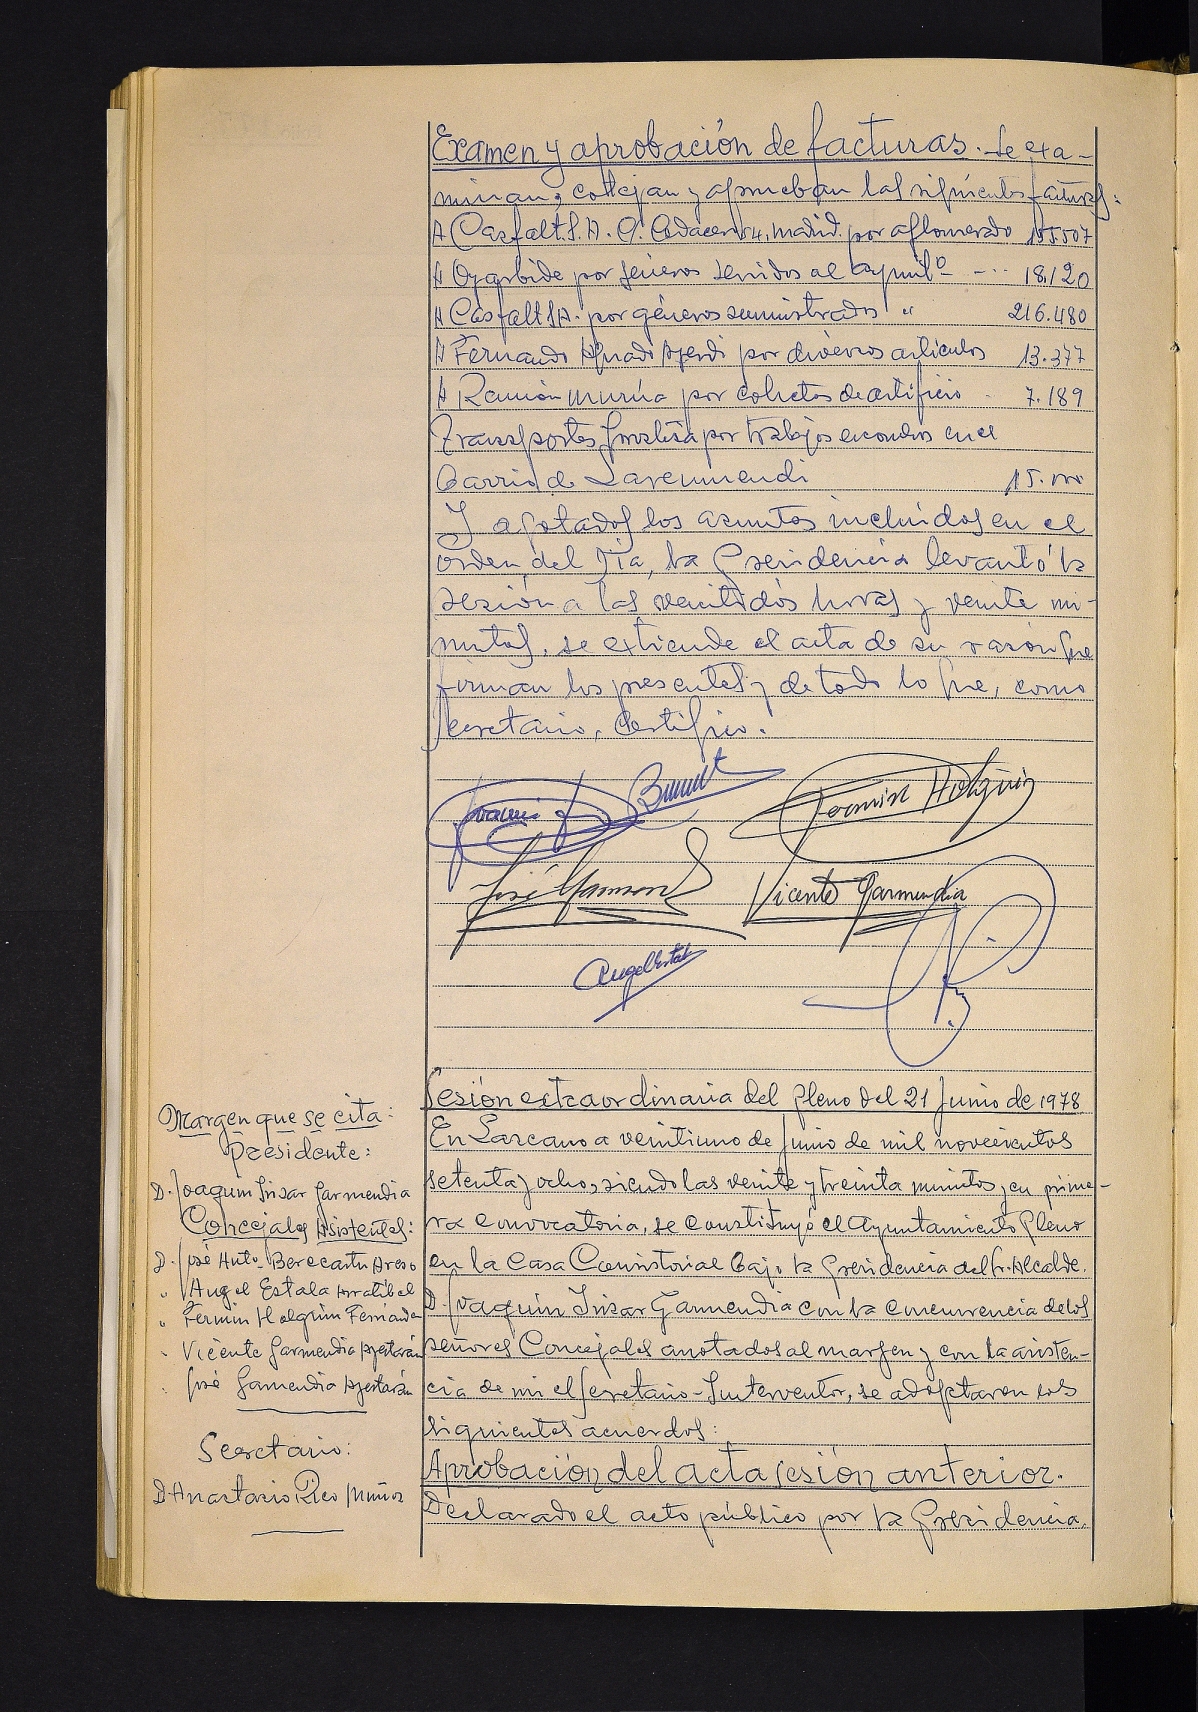 Examen y aprobación de facturas. Se exa-
minan, cotejan y aprueban las siguientes facturas:
A Casfalt. S. A. C. Madrid. por aglomerado 155507
A Oyarbide por géneros servidos al 18.120
A Casfalt SA. por géneros suministrados " 216.480
A Fernando por diversos artículos 13.377
A Ramón Murúa por cohetes de artificio 7.189
Transportes por trabajos en el
Barrio de Lazcanomendi 15.000
Y agotados los asuntos incluídos en el
orden del Día, la Presidencia levantó la
sesión a las veintidós horas y veinte mi-
nutos. se extiende el acta de su razón que
firman los presentes y de todo lo que, como
Secretario, Certifico.
Joaquin
Fermin Holguin
José Garmendia
Vicente Garmendia
Angel Estala
Sesión extraordinaria del Pleno del 21 Junio de 1978
Margen que se cita:
Presidente:
D. Joaquin Irizar Garmendia
Concejales Asistentes:
D. José Anto. Berecartu Areso
" Angel Estala Arratibel
" Fermin Holguin Fernandez
" Vicente Garmendia Ayestarán
" José Garmendia Ayestarán
Secretario:
D Anastasio Rico Muñoz
En Lazcano a veintiuno de Junio de mil novecientos
setenta y ocho, siendo las veinte y treinta minutos y en prime-
ra convocatoria, se constituyó el Ayuntamiento Pleno
en la Casa Consistorial bajo la Presidencia del Sr. Alcalde.
D. Joaquin Irizar Garmendia con la concurrencia de los
señores Concejales anotados al margen y con la asisten-
cia de mi el Secretario-Interventor, se adoptaron los
siguientes acuerdos:
Aprobación del acta sesión anterior.
Declarado el acto público por la Presidencia,